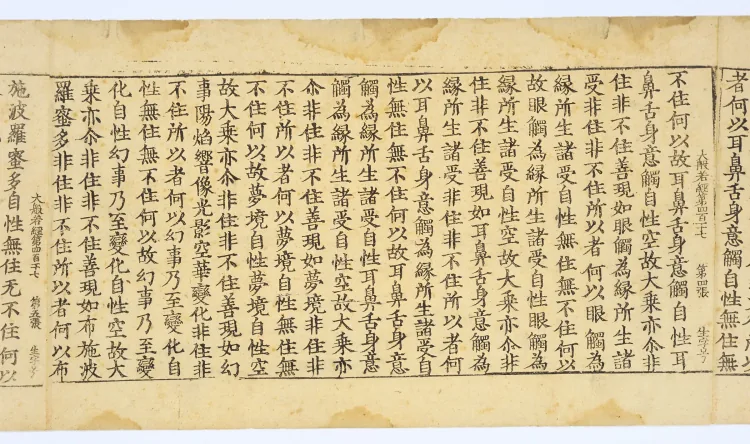 者何以耳鼻舌身意觸自性無住無
大般若經第四百十七 第四張 生字号
不住何以故耳鼻舌身意觸自性耳
鼻舌身意觸自性空故大乘亦尒非
住非不住善現如眼觸為緣所生諸
受非住非不住所以者何以眼觸為
緣所生諸受自性無住無不住何以
故眼觸為緣所生諸受自性眼觸為
緣所生諸受自性空故大乘亦尒非
住非不住善現如耳鼻舌身意觸為
緣所生諸受非住非不住所以者何
以耳鼻舌身意觸為緣所生諸受自
性無住無不住何以故耳鼻舌身意
觸為緣所生諸受自性耳鼻舌身意
觸為緣所生諸受自性空故大乘亦
尒非住非不住善現如夢境非住非
不住所以者何以夢境自性無住無
不住何以故夢境自性夢境自性空
故大乘亦尒非住非不住善現如幻
事陽焰響像光影空華變化非住非
不住所以者何以幻事乃至變化自
性無住無不住何以故幻事乃至變
化自性幻事乃至變化自性空故大
乘亦尒非住非不住善現如布施波
羅蜜多非住非不住所以者何以布
大般若經第四百十七 第五張 生字号
施波羅蜜多自性無住无不住何以